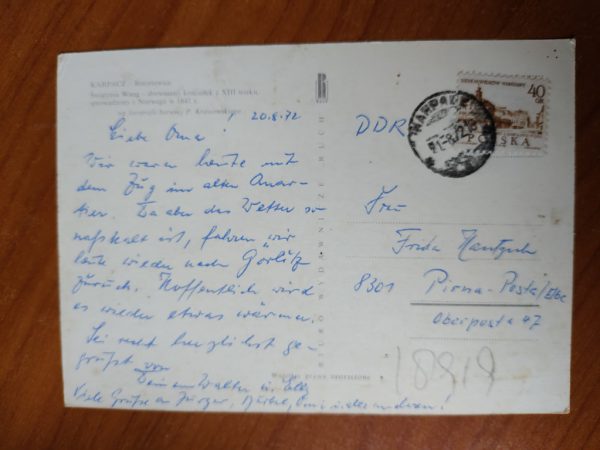 KARPACZ - Bierutowice
Świątynia Wang - drewniany kościółek z XIII wieku,
sprowadzony z Norwegii w 1841 r.
20.8.72
Liebe Oma!
Wir waren heute mit
dem Zug im alten
Da aber das Wetter so
naßkalt ist, fahren wir
heute wieder nach Görlitz
zurück. Hoffentlich wird
es wieder etwas wärmer.
Sei recht herzlichst ge-
grüßt von
Walter
Viele Grüße an
BIURO WYDAWNICZE RUCH
DDR
40
GR
POLSKA
KARPACZ
Frau
Frida
8301 Pirna-Posta/Elbe
Oberposta 47
18919